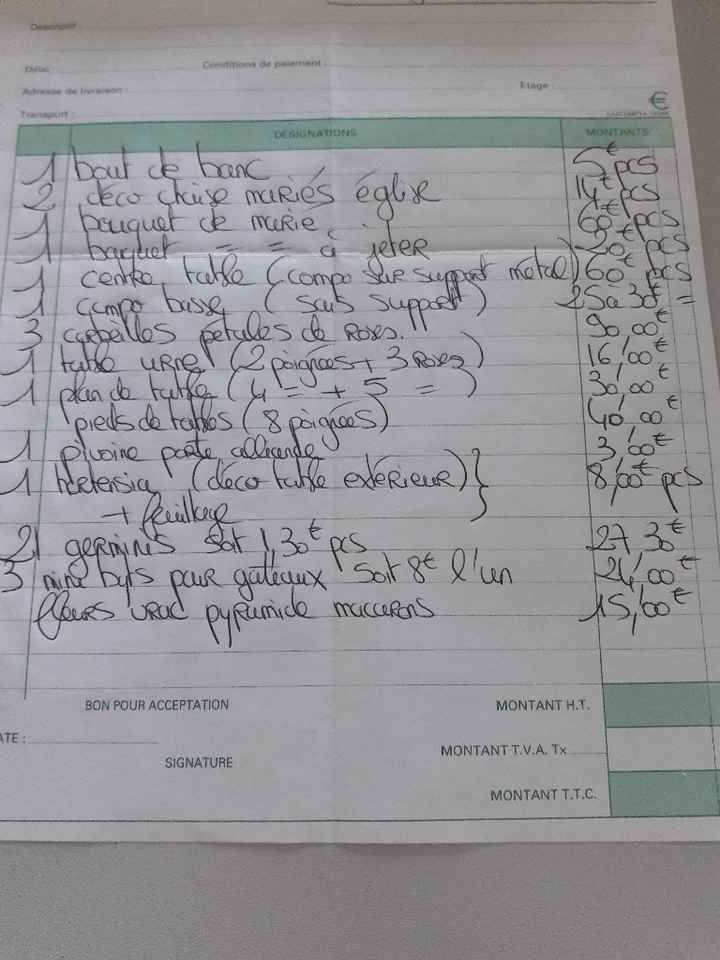 Descriptif :
Délai : Conditions de paiement :
Adresse de livraison : Etage :
Transport :
€
DÉSIGNATIONS MONTANTS
1 bout de banc 5€ pcs
2 déco chaise mariés église 14€ pcs
1 bouquet de mariée 68€ pcs
1 = = à jeter 20€ pcs
1 centre table (compo sur support métal) 60€ pcs
1 compo basse (sans support) 25 à 30€ =
3 corbeilles pétales de Roses. 90,00€
1 table urne (2 poignées + 3 Roses) 16,00€
1 plan de table (4 = + 5 = ) 30,00€
pieds de tables (8 poignées) 40,00€
1 pivoine porte alliance 3,00€
1 (déco table extérieur) } 8,00€ pcs
+ feuillage
21 germinis soit 1,30€ pcs 27,30€
3 pour gâteaux soit 8€ l'un 24,00€
fleurs vrac pyramide maccarons 15,00€
BON POUR ACCEPTATION MONTANT H.T.
ATE :
MONTANT T.V.A. Tx
SIGNATURE
MONTANT T.T.C.